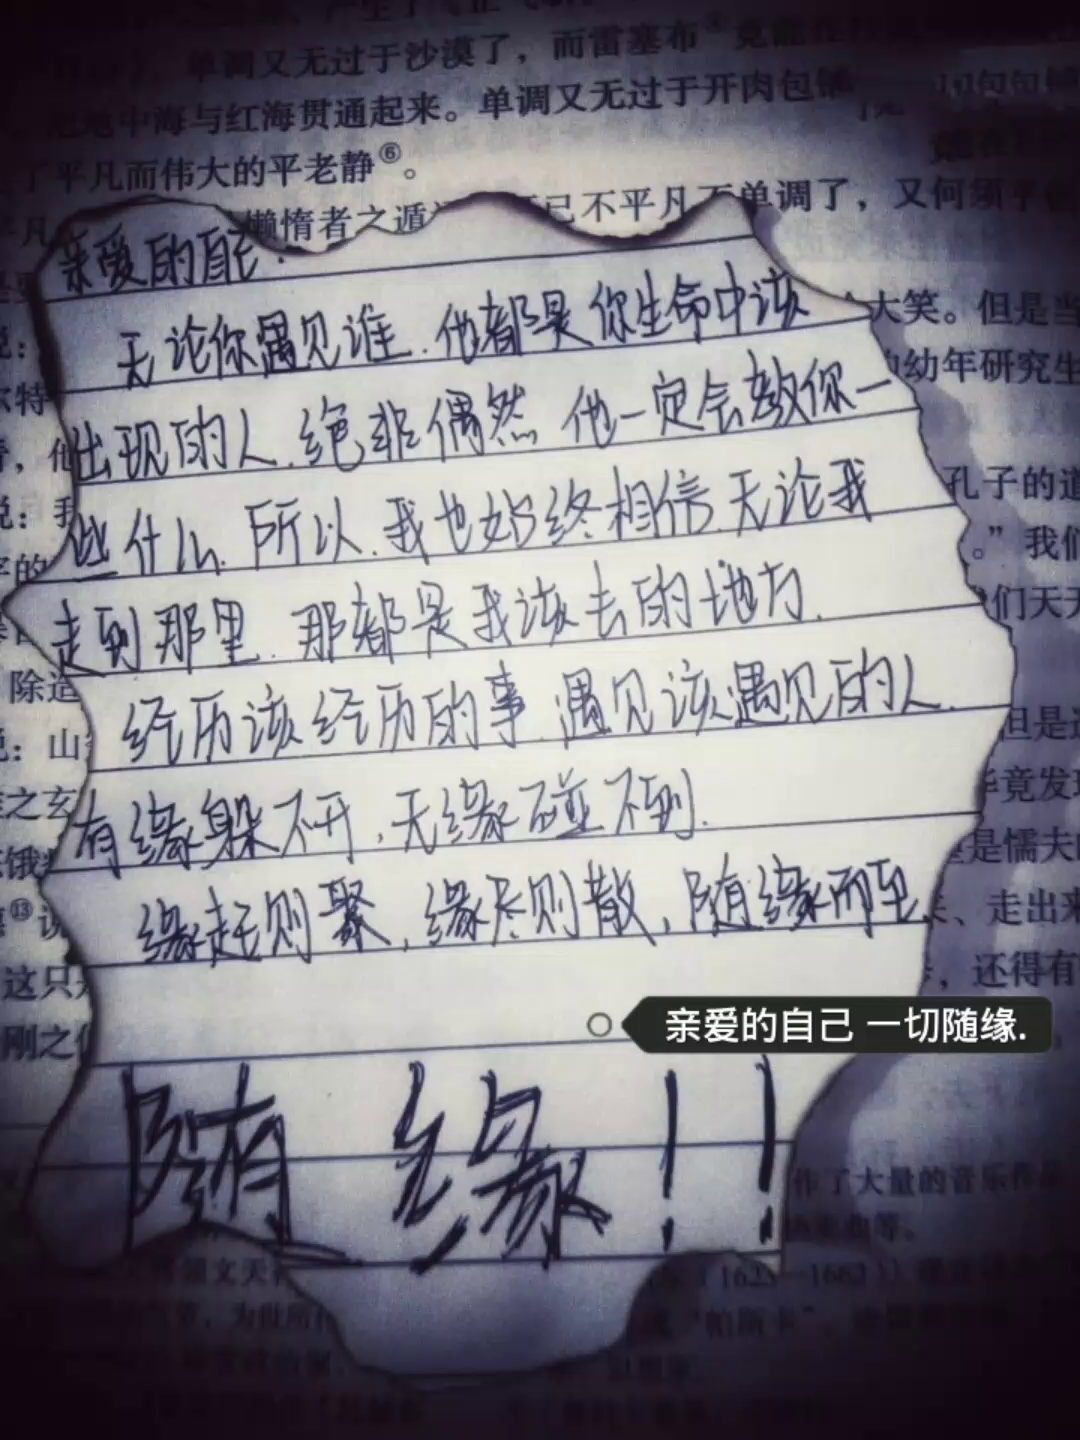 单调又无过于沙漠了，而雷塞布
地中海与红海贯通起来。单调又无过于开肉包铺
了平凡而伟大的平老静⑥。
懒惰者之遁
已不平凡而单调了，又何须
亲爱的自己：
无论你遇见谁.他都是你生命中该
出现的人.绝非偶然 他一定会教你一
些什么.所以.我也始终相信.无论我
走到那里.那都是我该去的地方.
经历该经历的事.遇见该遇见的人.
有缘躲不开,无缘碰不到.
缘起则聚,缘尽则散,随缘而至
亲爱的自己 一切随缘.
随 缘!!
大笑。但是当
幼年研究生
孔子的道
。”我们
们天天
除造
说：山
但是
毕竟发现
之玄
是懦夫
⑬
、走出来
这只
，还得有
刚之
作了大量的音乐作
等。
文天
(1623—1662)
为世所
“帕斯卡”，